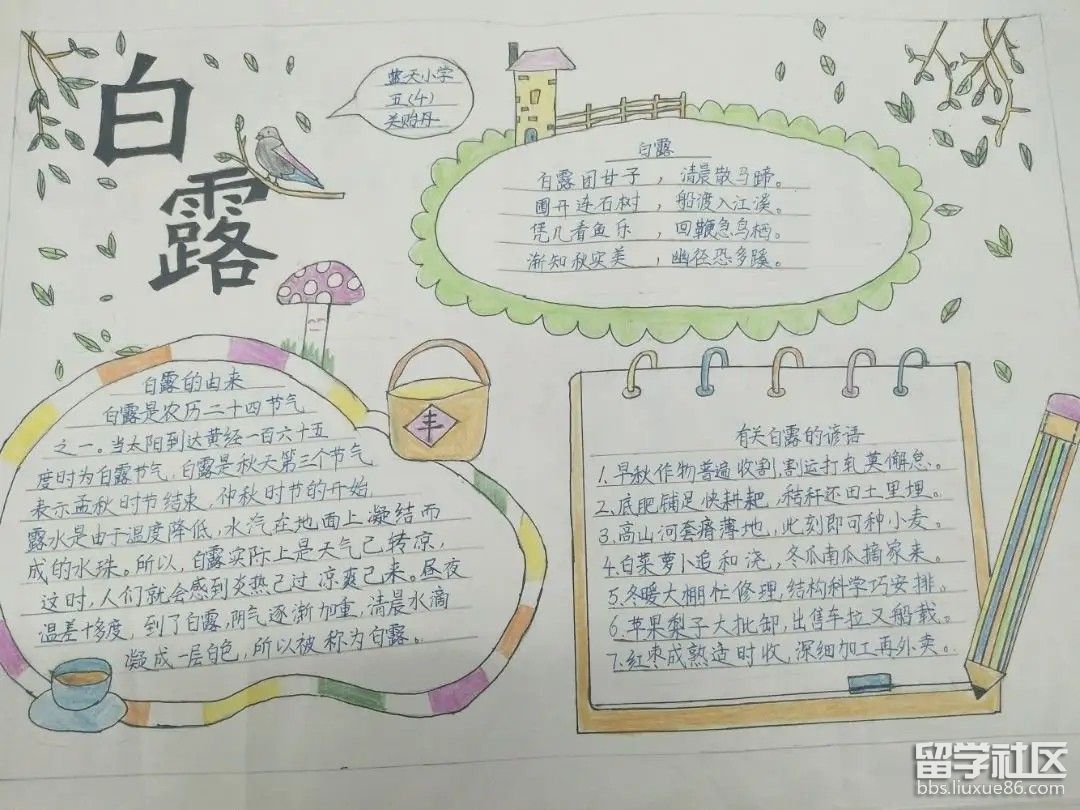 白露
蓝天小学
五(4)
关贻丹
白露
白露团甘子，清晨散马蹄。
圃开连石树，船渡入江溪。
凭几看鱼乐，回鞭急鸟栖。
渐知秋实美，幽径恐多蹊。
白露的由来
白露是农历二十四节气
之一。当太阳到达黄经一百六十五
度时为白露节气，白露是秋天第三个节气
表示孟秋时节结束，仲秋时节的开始，
露水是由于温度降低，水汽在地面上凝结而
成的水珠。所以，白露实际上是天气已转凉，
这时，人们就会感到炎热已过凉爽已来。昼夜
温差十多度，到了白露，阴气逐渐加重，清晨水滴
凝成一层白色，所以被称为白露。
丰
有关白露的谚语
1.早秋作物普遍收割，割运打轧莫懈怠。
2.底肥铺足快耕耙，秸秆还田土里埋。
3.高山河套瘠薄地，此刻即可种小麦。
4.白菜萝卜追和浇，冬瓜南瓜摘家来。
5.冬暖大棚忙修理，结构科学巧安排。
6.苹果梨子大批卸，出售车拉又船载。
7.红枣成熟适时收，深细加工再外卖。
留学社区
bbs.liuxue86.com